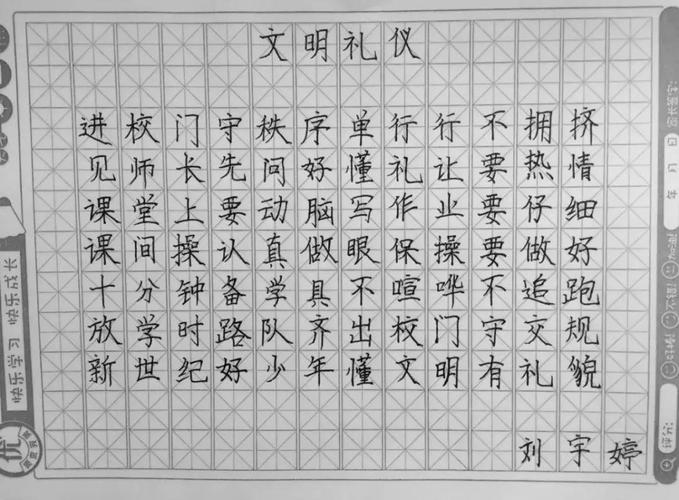 文明礼仪
进校门守秩序单行行不拥挤
见师长先问好懂礼让要热情
课堂上要动脑写作业要仔细
课间操认真做眼保操要做好
十分钟备学具不喧哗不追跑
放学时路队齐出校门守交规
新世纪好少年懂文明有礼貌
刘宇婷
快乐学习 快乐成长
优
年 月 日
评分: